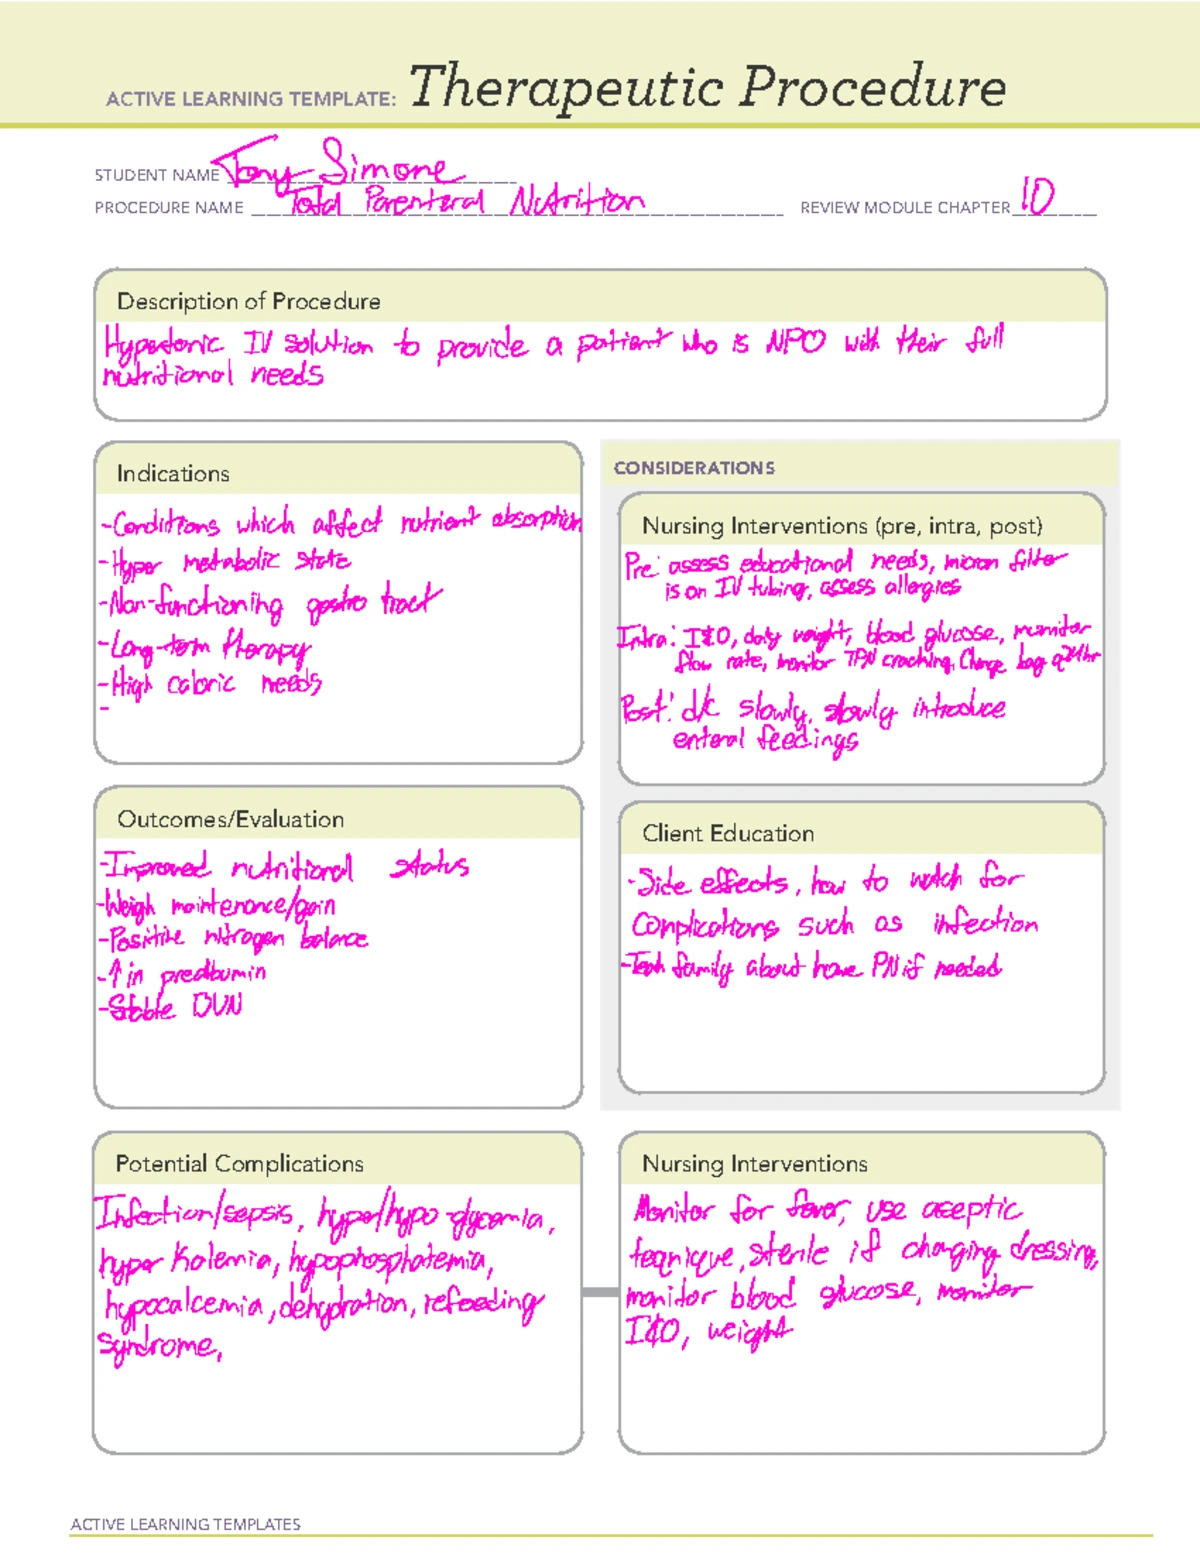 ACTIVE LEARNING TEMPLATE: Therapeutic Procedure
STUDENT NAME Tony Simone
PROCEDURE NAME Total Parenteral Nutrition REVIEW MODULE CHAPTER 10
Description of Procedure
Hypertonic IV solution to provide a patient who is NPO with their full
nutritional needs
Indications
-Conditions which affect nutrient absorption
-Hyper metabolic state
-Non-functioning gastro tract
-Long-term therapy
-High caloric needs
-
CONSIDERATIONS
Nursing Interventions (pre, intra, post)
Pre: assess educational needs, micron filter
is on IV tubing, assess allergies
Intra: I&O, daily weight, blood glucose, monitor
flow rate, monitor TPN cracking, Change bag q24hr
Post: d/c slowly, slowly introduce
enteral feedings
Outcomes/Evaluation
-Improved nutritional status
-Weigh maintenance/gain
-Positive nitrogen balance
-↑ in prealbumin
-Stable BUN
Client Education
-Side effects, how to watch for
complications such as infection
-Teach family about home PN if needed
Potential Complications
Infection/sepsis, hyper/hypo glycemia,
hyper Kalemia, hypophosphatemia,
hypocalcemia, dehydration, refeeding
syndrome,
Nursing Interventions
Monitor for fever, use aseptic
teqnique, sterile if changing dressing,
monitor blood glucose, monitor
I&O, weight
ACTIVE LEARNING TEMPLATES